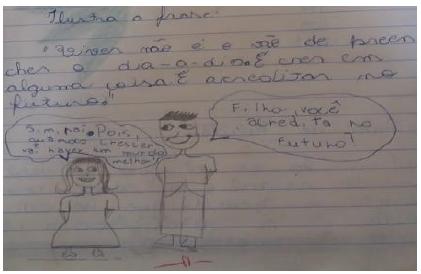 Ilustra a frase:
"Viver não é e vãe de preen
cher o dia-a-dia. É crer em
alguma coisa. É acreditar no
futuro."
Sim, pai. Pois,
quando crescer
vai haver um mundo
melhor!
Filha, você
acredita no
futuro?